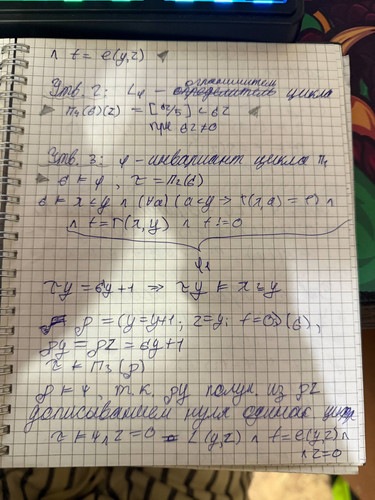 ∧ t = e(y,z)
Утв. 2: Lψ – ограничитель цикла
π₄(σ)(z) = [σz/5] < σz
при σz ≠ 0
Утв. 3: φ – инвариант цикла π₁
σ ⊨ φ, τ = π₂(σ)
σ ⊨ x ≤ y ∧ (∀a)(a < y → r(x,a) = 0) ∧
∧ t = r(x,y) ∧ t != 0
φ₁
τy = σy + 1 ⇒ τy ⊨ x ≤ y
ρ = (y = y+1; z = y; t = 0)(σ),
ρy = ρz = σy + 1
τ = π₃(ρ)
ρ ⊨ ψ т.к. ρy получ. из ρz
дописыванием нуля одинак цифр
τ ⊨ ψ ∧ z = 0 = L(y,z) ∧ t = e(y,z) ∧
∧ z = 0